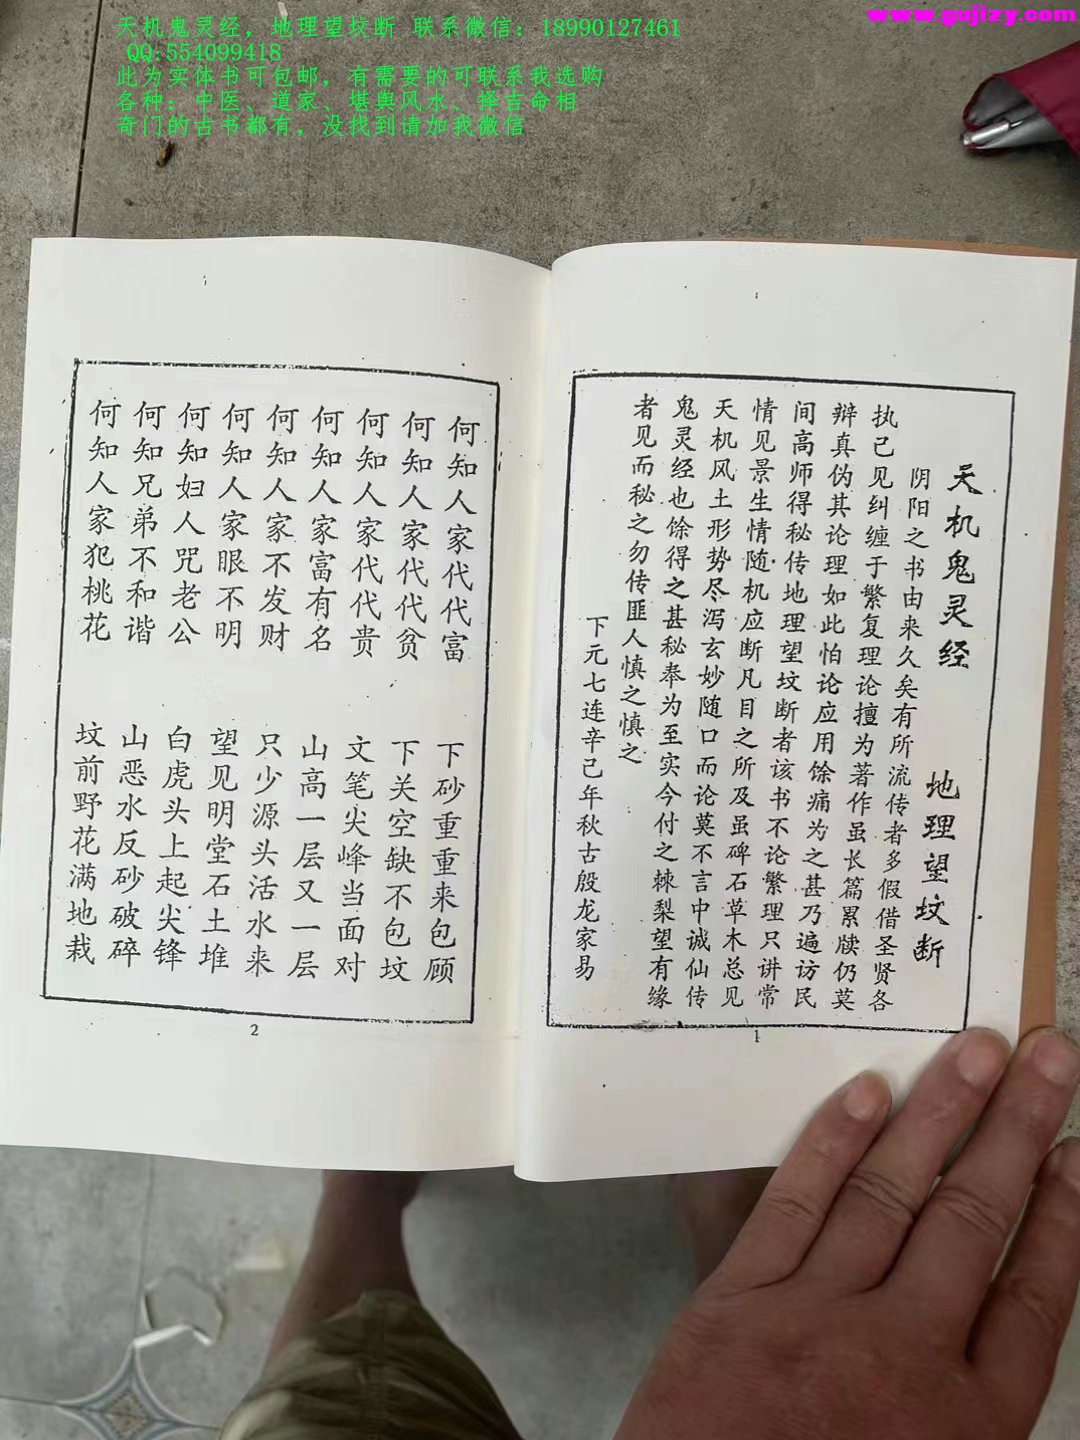 天机鬼灵经，地理望坟断 联系微信：18990127461
QQ:554099418
此为实体书可包邮，有需要的可联系我选购
各种：中医、道家、堪舆风水、择吉命相
奇门的古书都有，没找到请加我微信
www.gujizy.com
天机鬼灵经 地理望坟断
阴阳之书由来久矣有所流传者多假借圣贤各
执己见纠缠于繁复理论擅为著作虽长篇累牍仍莫
辩真伪其论理如此怕论应用馀痛为之甚乃遍访民
间高师得秘传地理望坟断者该书不论繁理只讲常
情见景生情随机应断凡目之所及虽碑石草木总见
天机风土形势尽泻玄妙随口而论莫不言中诚仙传
鬼灵经也馀得之甚秘奉为至实今付之棘梨望有缘
者见而秘之勿传匪人慎之慎之
下元七连辛己年秋古殷龙家易
1
何知人家代代富 下砂重重来包顾
何知人家代代贫 下关空缺不包坟
何知人家代代贵 文笔尖峰当面对
何知人家富有名 山高一层又一层
何知人家不发财 只少源头活水来
何知人家眼不明 望见明堂石土堆
何知妇人咒老公 白虎头上起尖锋
何知兄弟不和谐 山恶水反砂破碎
何知人家犯桃花 坟前野花满地栽
2